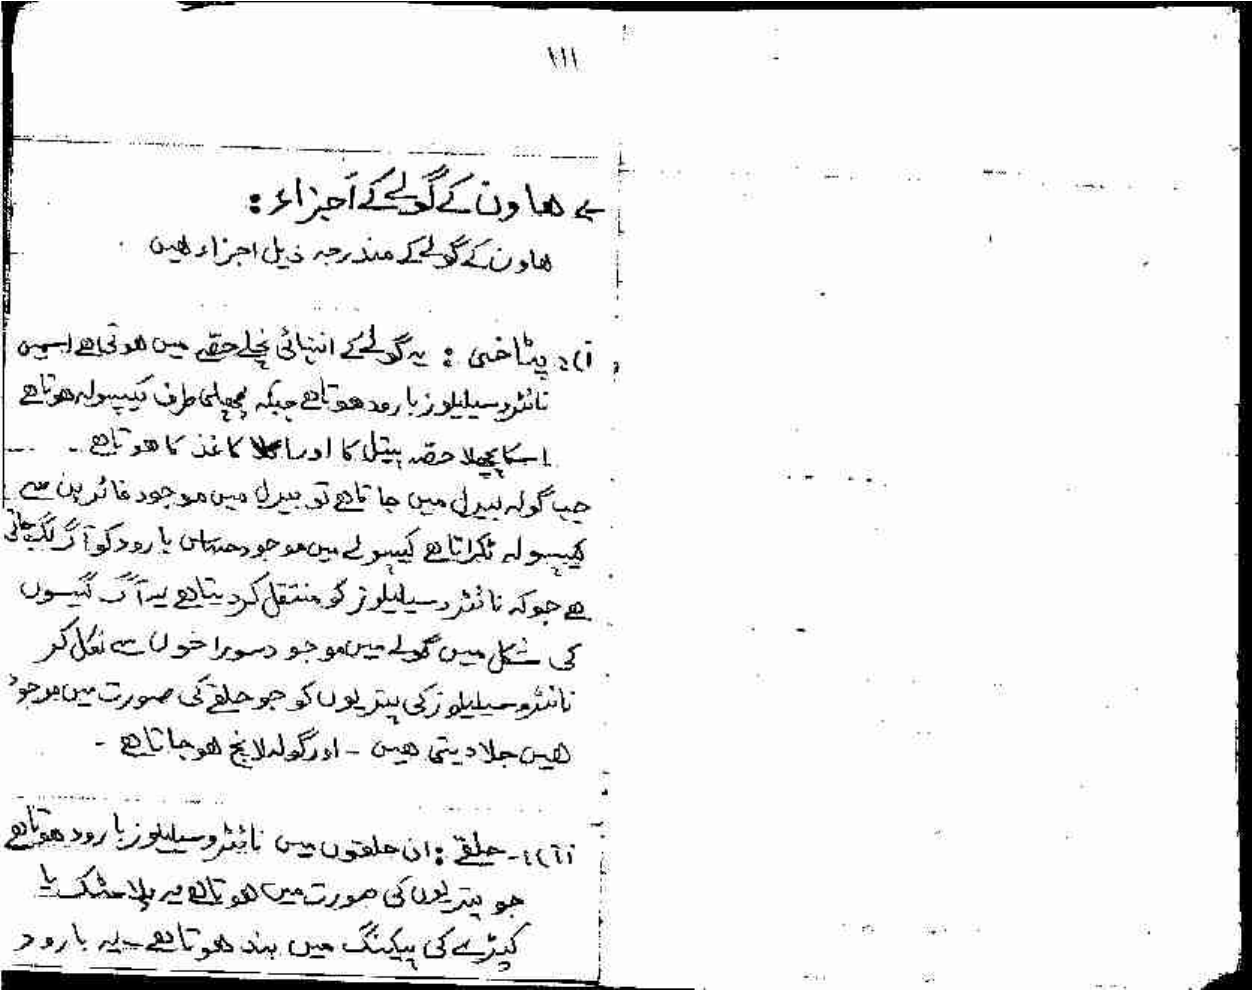 111
ے هاون کے گولے کے اَجزاء :
هاون کے گولے کے مندرجہ ذیل اجزاء هیں
i): پٹاخی : یہ گولے کے انتہائی نچلے حصّہ میں هوتی هے اسمیں
نائٹروسیلیلوز بارود هوتا هے جبکہ پچھلی طرف کیپسولہ هوتا هے
اسکا پچھلا حصّہ پیتل کا اور اگلا کاغذ کا هوتا هے ۔
جب گولہ بیرل میں جاتا هے تو بیرل میں موجود فائر پن سے
کیپسولہ ٹکراتا هے کیپسولے میں موجود حساس بارود کو آگ لگ جاتی
هے جو کہ نائٹروسیلیلوز کو منتقل کر دیتا هے یہ آگ گیسوں
کی شکل میں گولے میں موجود سوراخوں سے نکل کر
نائٹروسیلیلوز کی پتریوں کو جو حلقے کی صورت میں موجود
هیں جلا دیتی هیں ۔ اور گولہ لانچ هو جاتا هے ۔
ii):۔ حلقے : ان حلقوں میں نائٹروسیلیلوز بارود هوتا هے
جو پتریوں کی صورت میں هوتا هے یہ پلاسٹک یا
کپڑے کی پیکنگ میں بند هوتا هے ۔ یہ بارود